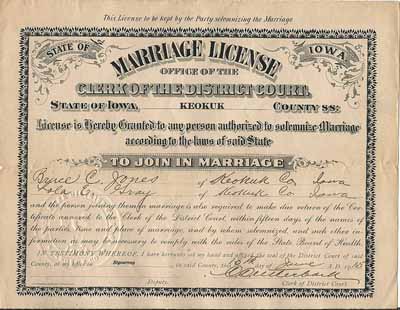 This License to be kept by the Party solemnizing the Marriage
STATE OF IOWA.
MARRIAGE LICENSE
OFFICE OF THE
CLERK OF THE DISTRICT COURT.
STATE OF IOWA, KEOKUK COUNTY SS:
License is Hereby Granted to any person authorized to solemnize Marriage
according to the laws of said State
TO JOIN IN MARRIAGE
C. Jones of Keokuk Co Iowa
Gray of Keokuk Co Iowa
and the person joining them in marriage is also required to make due return of the Cer-
tificate annexed to the Clerk of the District Court, within fifteen days of the names of
the parties, time and place of marriage, and by whom solemnized, and such other in-
formation as may be necessary to comply with the rules of the State Board of Health.
IN TESTIMONY WHEREOF, I have hereunto set my hand and affixed the seal of the District Court of said
County, at my office in Sigourney in said County, this
Deputy. Clerk of District Court